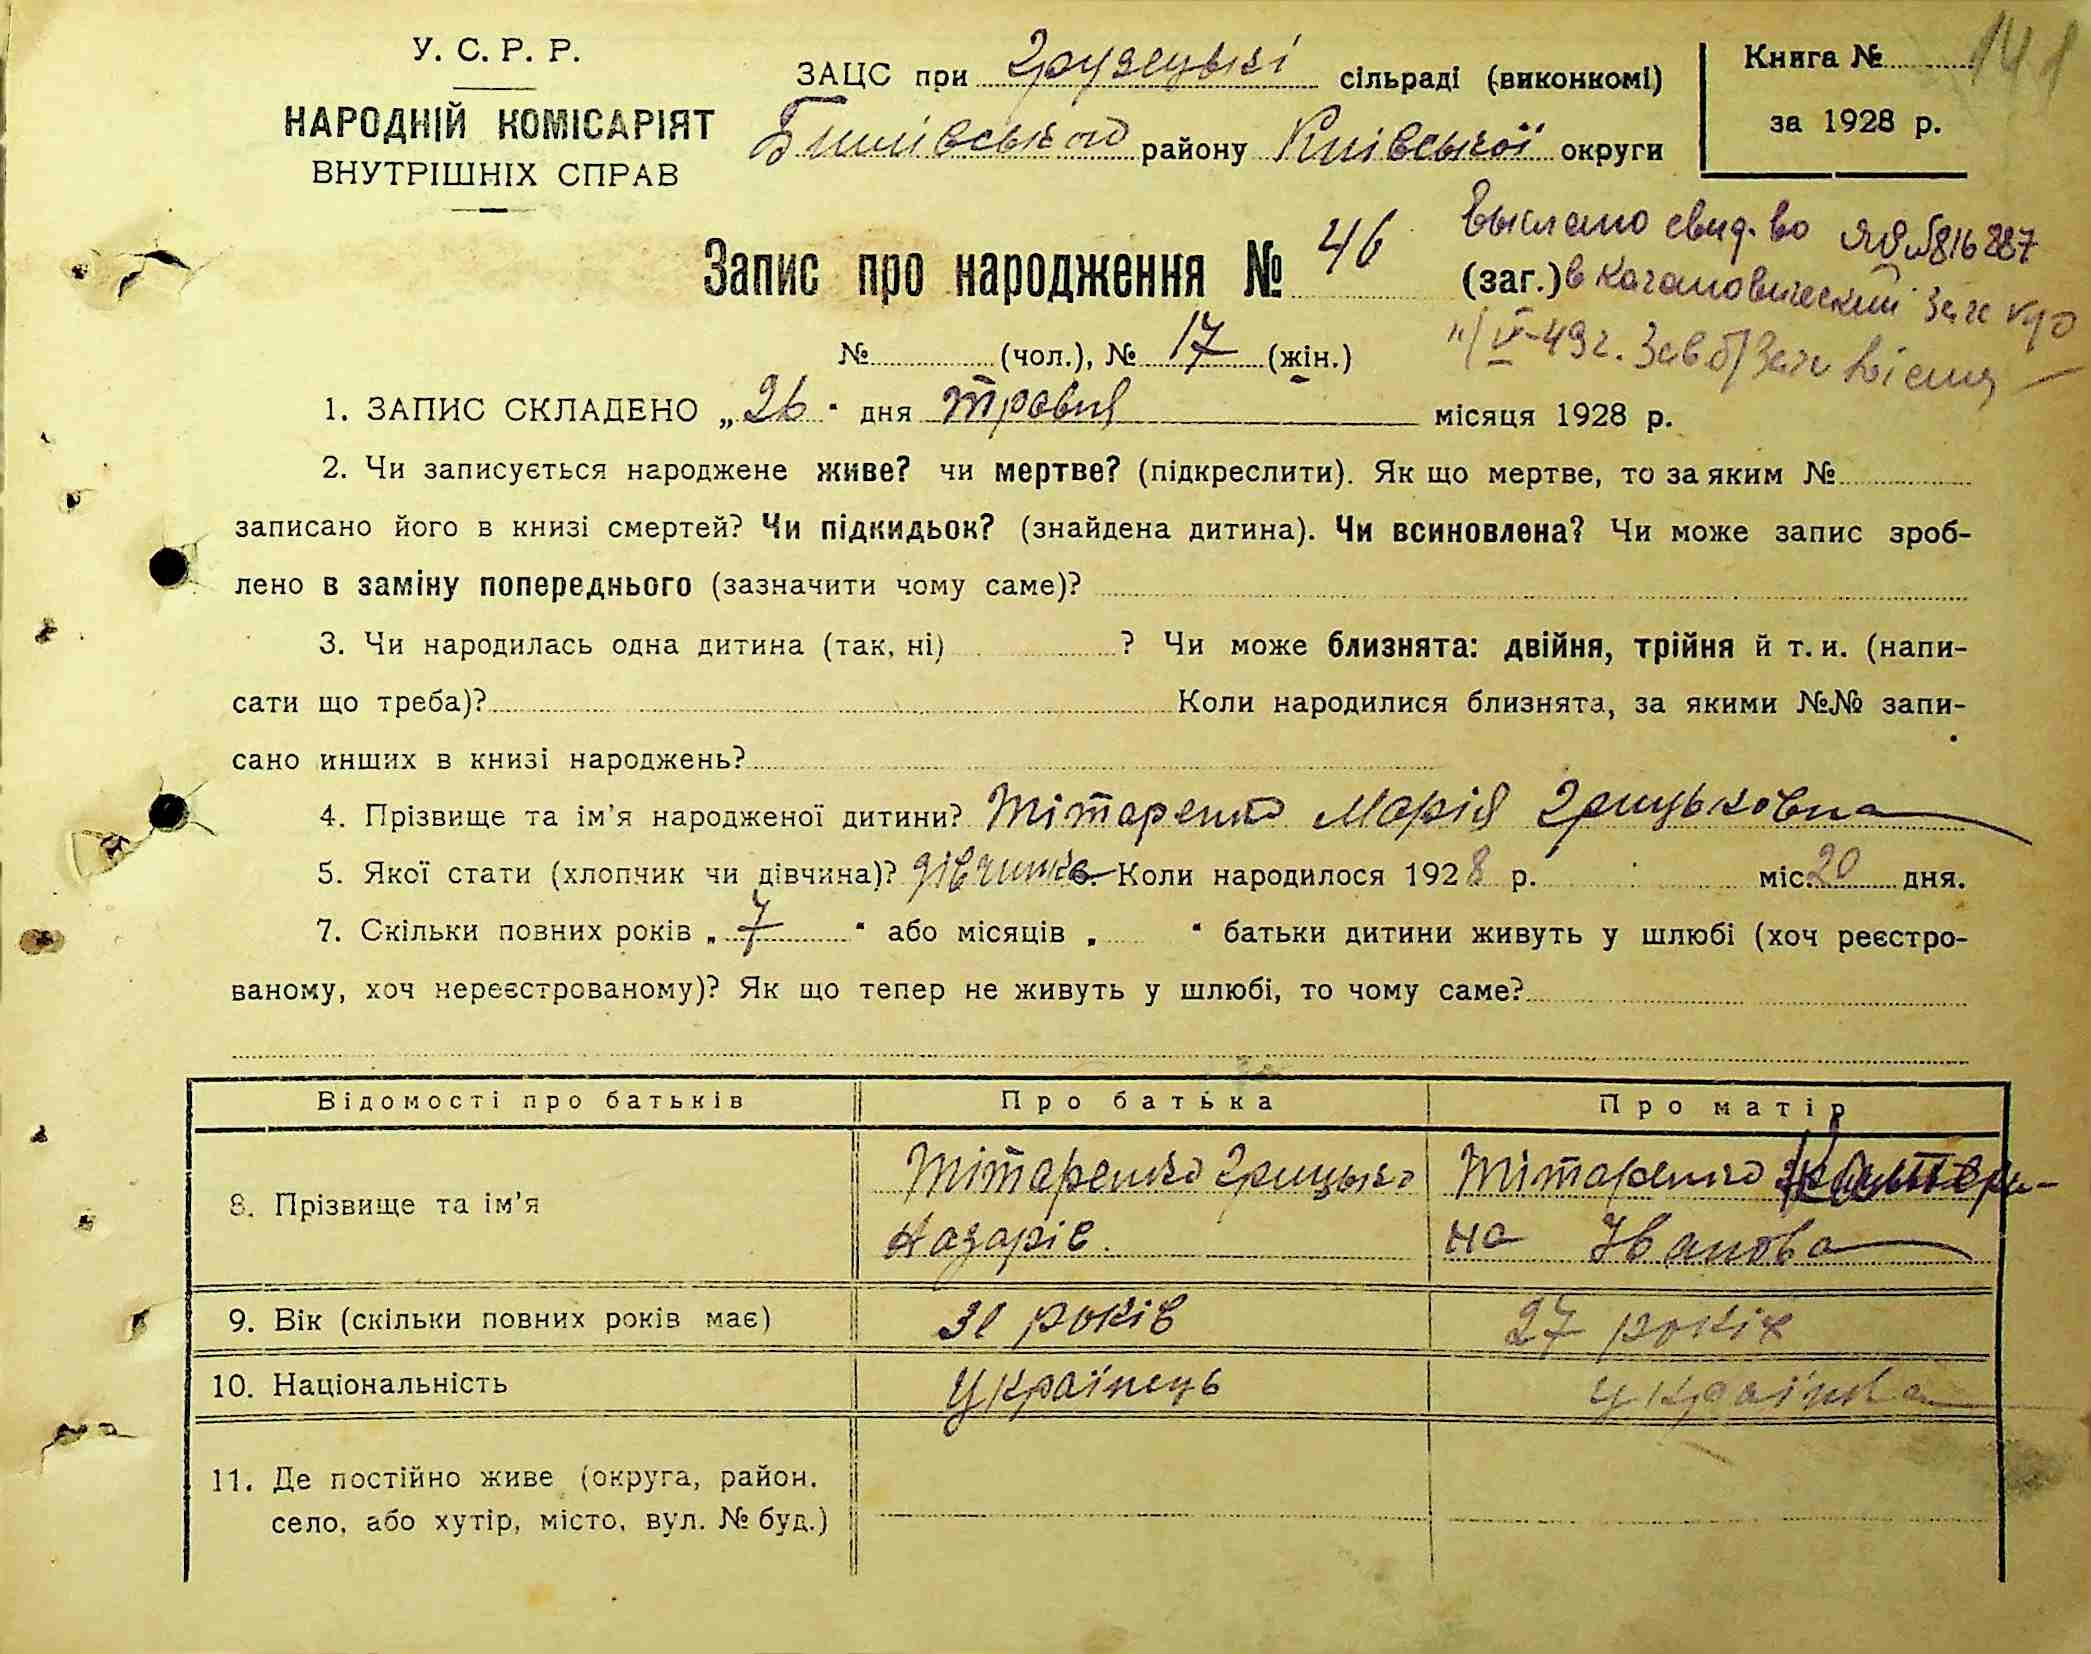 У. С. Р. Р.
НАРОДНІЙ КОМІСАРІЯТ
ВНУТРІШНІХ СПРАВ
ЗАЦС при Грузецькі сільраді (виконкомі)
району Київської округи
Книга № 141
за 1928 р.
Запис про народження № 46 (заг.)
Выслано свид-во ЯЯ №816287
в Кагановический Загс
№ (чол.), № 17 (жін.)
1. ЗАПИС СКЛАДЕНО „26" дня травня місяця 1928 р.
2. Чи записується народжене живе? чи мертве? (підкреслити). Як що мертве, то за яким №
записано його в книзі смертей? Чи підкидьок? (знайдена дитина). Чи всиновлена? Чи може запис зроб-
лено в заміну попереднього (зазначити чому саме)?
3. Чи народилась одна дитина (так, ні) ? Чи може близнята: двійня, трійня й т. и. (напи-
сати що треба)? Коли народилися близнята, за якими №№ запи-
сано инших в книзі народжень?
4. Прізвище та ім'я народженої дитини? Тітаренко Марія Грицьковна
5. Якої стати (хлопчик чи дівчина)? дівчинка 6. Коли народилося 1928 р. міс. 20 дня.
7. Скільки повних років „7" або місяців „ " батьки дитини живуть у шлюбі (хоч реєстро-
ваному, хоч нереєстрованому)? Як що тепер не живуть у шлюбі, то чому саме?
Відомості про батьків Про батька Про матір
8. Прізвище та ім'я Тітаренко Грицько Тітаренко Катери-
Назарів. на Іванова
9. Вік (скільки повних років має) 31 років 27 років
10. Національність Українець Українка
11. Де постійно живе (округа, район,
село, або хутір, місто, вул. № буд.)